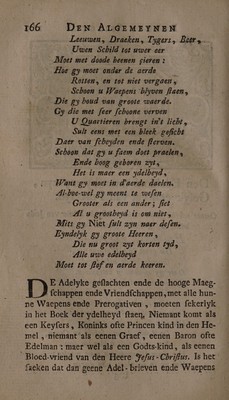 166 DEN ALGEMEYNEN
Leeuwen, Draeken, Tygers, Beer,
Uwen Schild tot uwer eer
Moet met doode beenen çieren :
Hoe gy moet onder de aerde
Rotten, en tot niet vergaen,
Schoon u Waepens blyven staen,
Die gy houd van groote waerde.
Gy die met seer schoone verwen
U Quartieren brengt in't licht,
Sult eens met een bleek gesicht
Daer van scheyden ende sterven.
Schoon dat gy u faem doet praelen,
Ende hoog geboren zyt,
Het is maer een ydelheyd,
Want gy moet in d'aerde daelen.
Al-hoe-wel gy meent te wesen
Grooter als een ander; siet
Al u grootheyd is om niet,
Mits gy Niet sult zyn naer desen.
Eyndelyk gy groote Heeren,
Die nu groot zyt korten tyd,
Alle uwe edelheyd
Moet tot stof en aerde keeren.
DE Adelyke geslachten ende de hooge Maeg-
schappen ende Vriendschappen, met alle hun-
ne Waepens ende Prerogativen, moeten sekerlyk
in het Boek der ydelheyd staen, Niemant komt als
een Keysers, Koninks ofte Princen kind in den He-
mel, niemant als eenen Graef, eenen Baron ofte
Edelman : maer wel als een Godts-kind, als eenen
Bloed-vriend van den Heere Jesus-Christus. Is het
saeken dat geene Adel-brieven ende Waepens